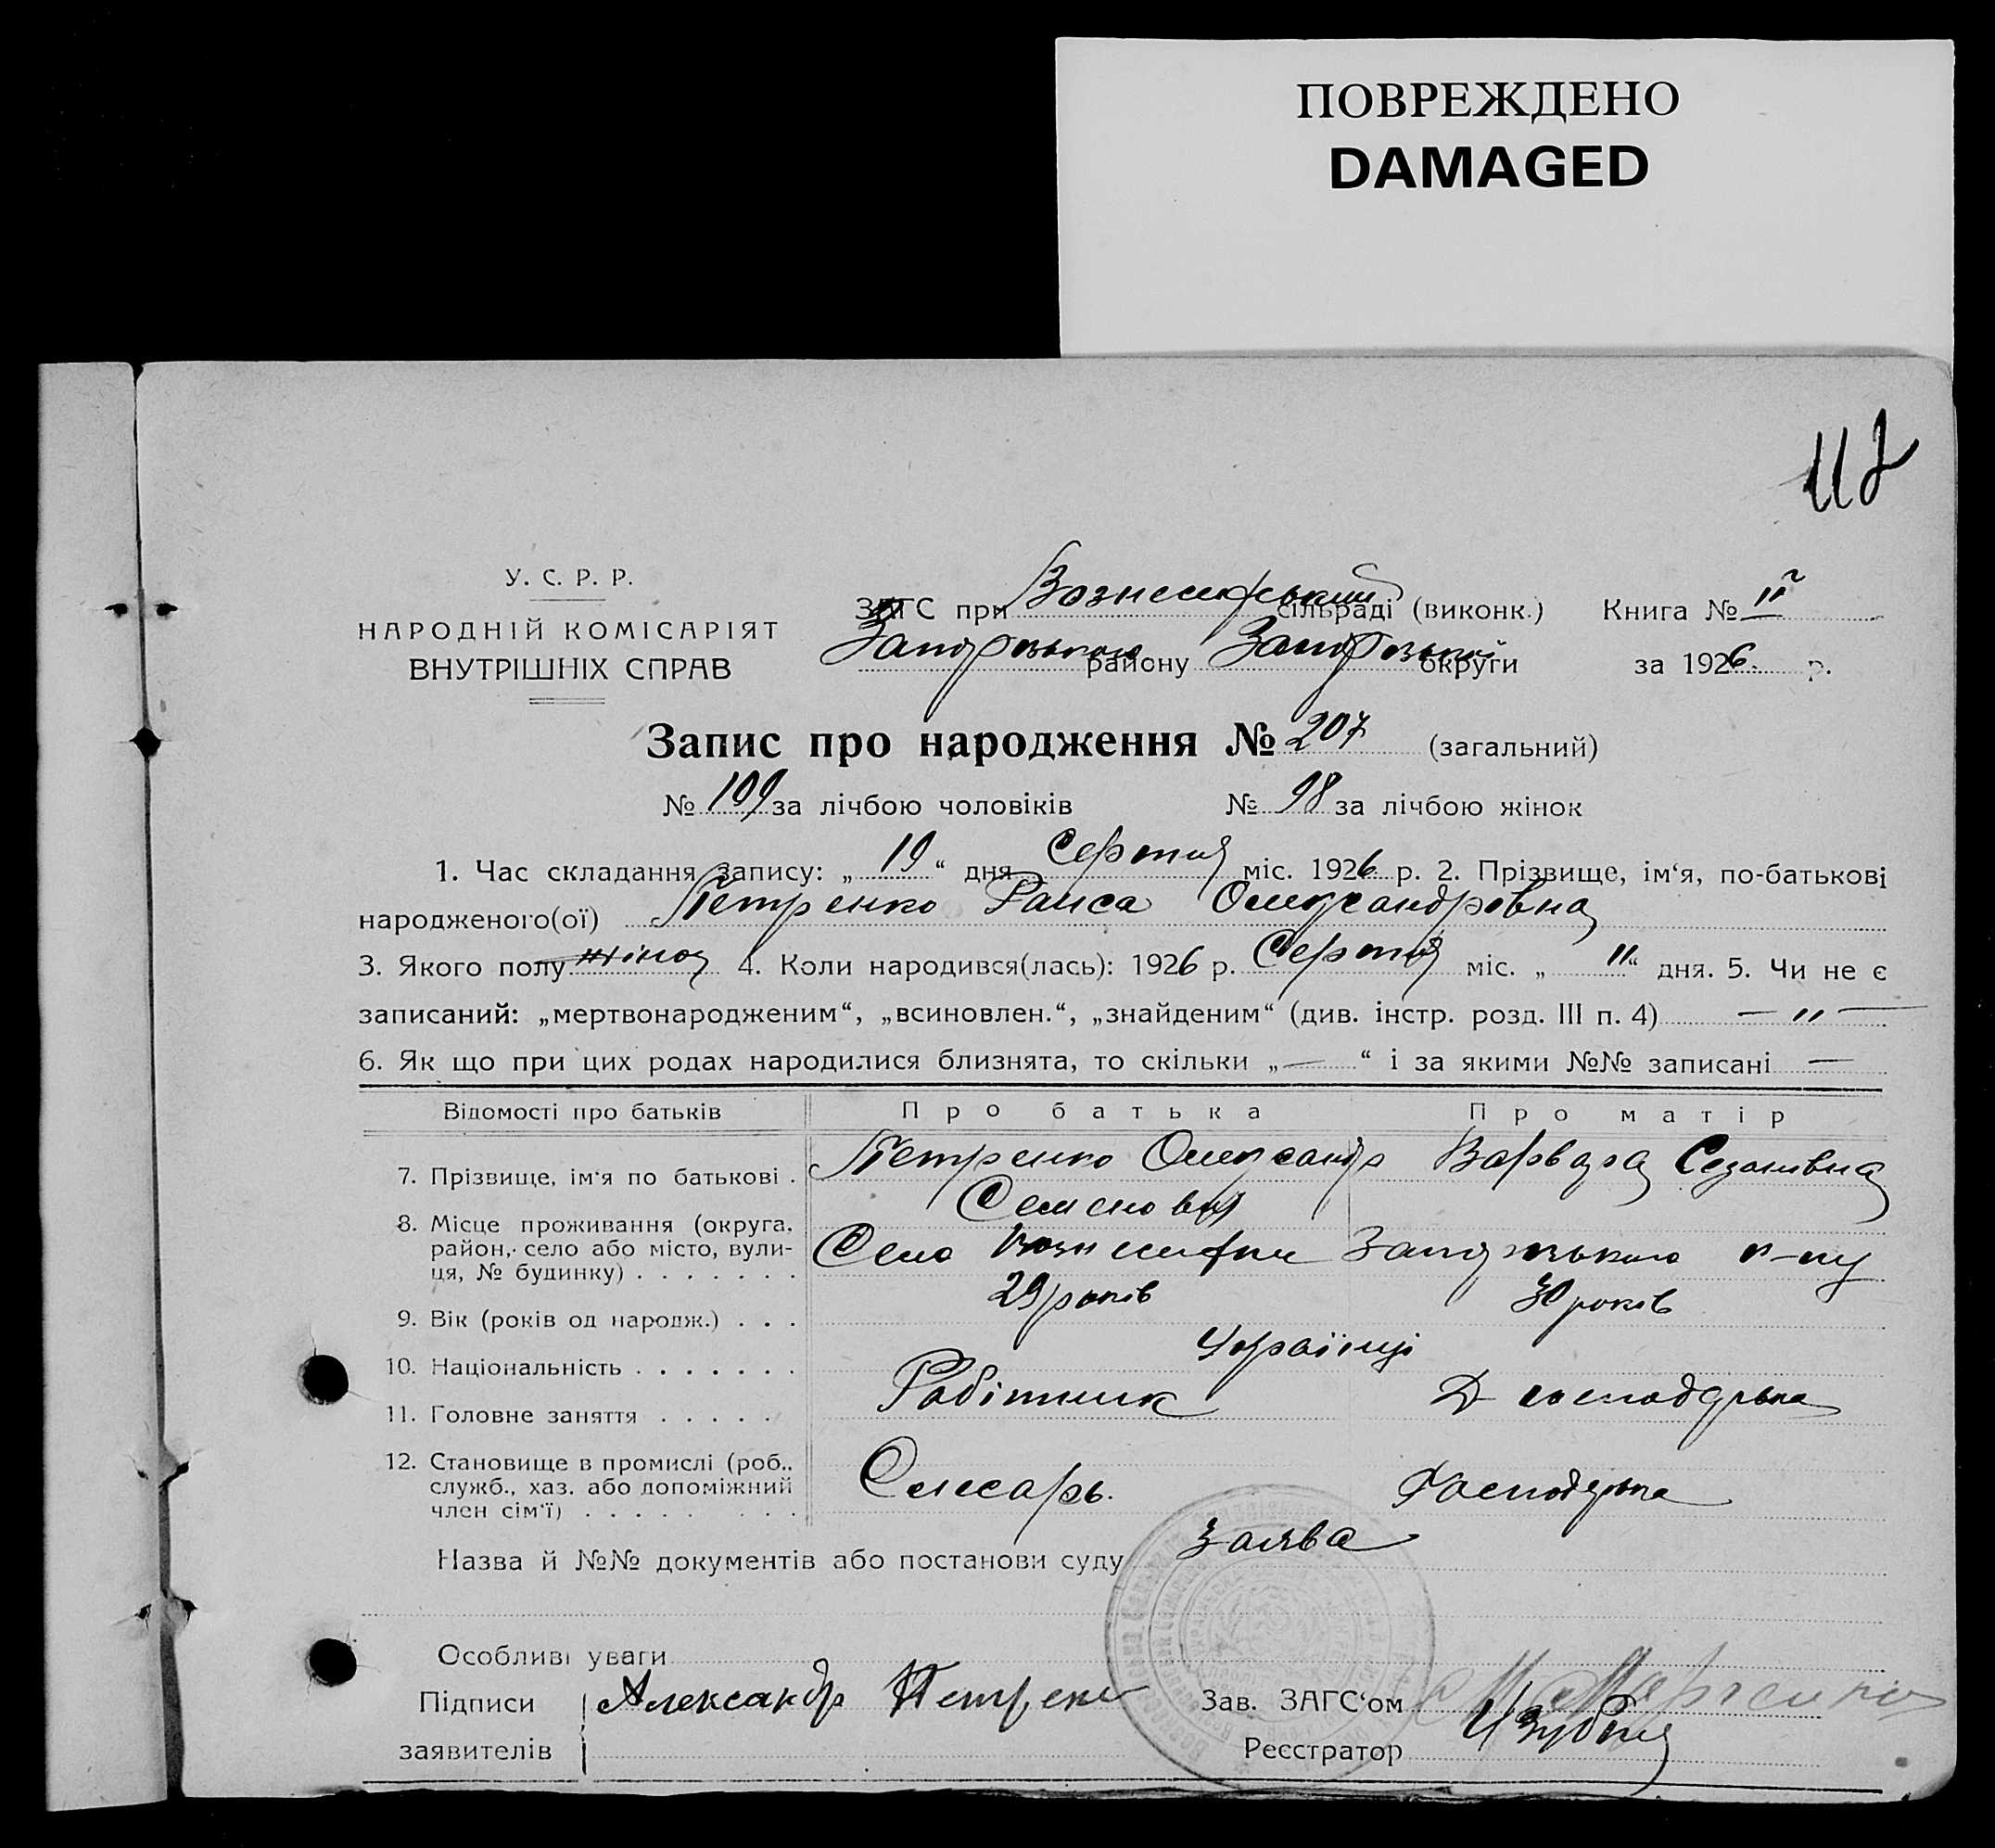 ПОВРЕЖДЕНО
DAMAGED
117
У. С. Р. Р.
НАРОДНІЙ КОМІСАРІЯТ
ВНУТРІШНІХ СПРАВ
ЗАГС при Вознесенський сільраді (виконк.) Книга № II
Запорізького району Запорізької округи за 1926 р.
Запис про народження № 207 (загальний)
№ 109 за лічбою чоловіків № 98 за лічбою жінок
1. Час складання запису: „ 19 “ дня Серпня міс. 1926 р. 2. Прізвище, ім‘я, по-батькові
народженого(ої) Петренко Раиса Олександровна
3. Якого полу жіноч 4. Коли народився(лась): 1926 р. Серпня міс. „ 11 “ дня. 5. Чи не є
записаний: „мертвонародженим“, „всиновлен.“, „знайденим“ (див. інстр. розд. III п. 4) — „ —
6. Як що при цих родах народилися близнята, то скільки „ — “ і за якими №№ записані —
Відомості про батьків Про батька Про матір
7. Прізвище, ім‘я по батькові . Петренко Олександр Варвара
Семенович
8. Місце проживання (округа, район, село або місто, вули-
ця, № будинку) . . . . . . . Село Вознесенки Запорізького р-ну
9. Вік (років од народж.) . . . 29 років 30 років
10. Національність . . . . . . . Українці
11. Головне заняття . . . . . Робітник Д господарька
12. Становище в промислі (роб., служб., хаз. або допоміжний
член сім‘ї) . . . . . . . . Слюсарь. Господарька
Назва й №№ документів або постанови суду Заява
Особливі уваги
Підписи Александр Петренко Зав. ЗАГС‘ом
заявителів Реєстратор